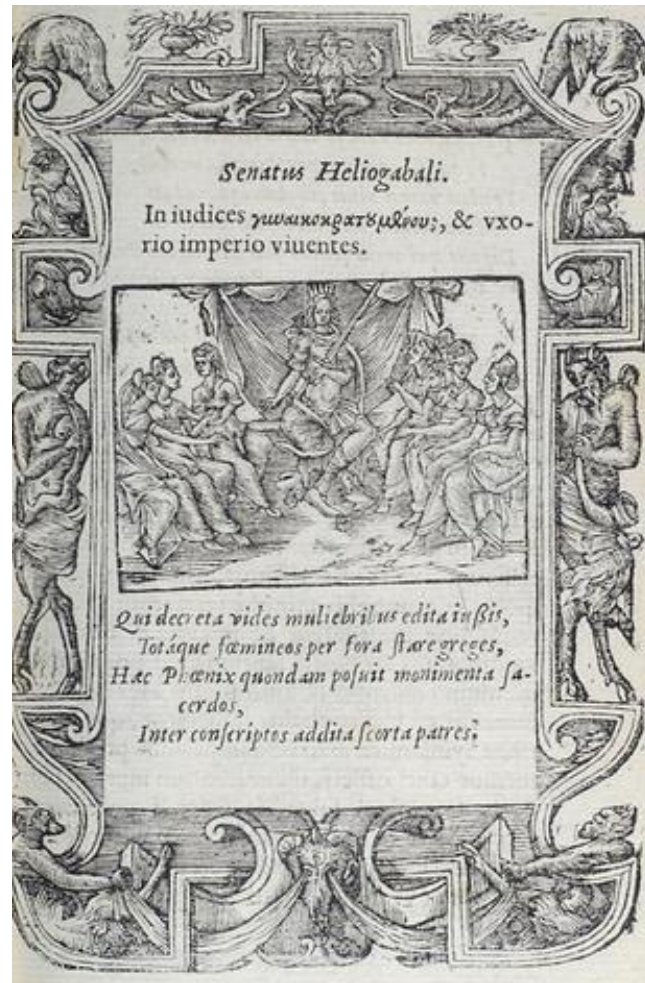 Senatus Heliogabali.
In iudices γυναικοκρατουμένους, & vxo-
rio imperio viuentes.
Qui decreta vides muliebribus edita iußis,
Totáque fœmineos per fora ſtare greges,
Hæc Phœnix quondam poſuit monimenta ſa-
cerdos,
Inter conſcriptos addita ſcorta patres.